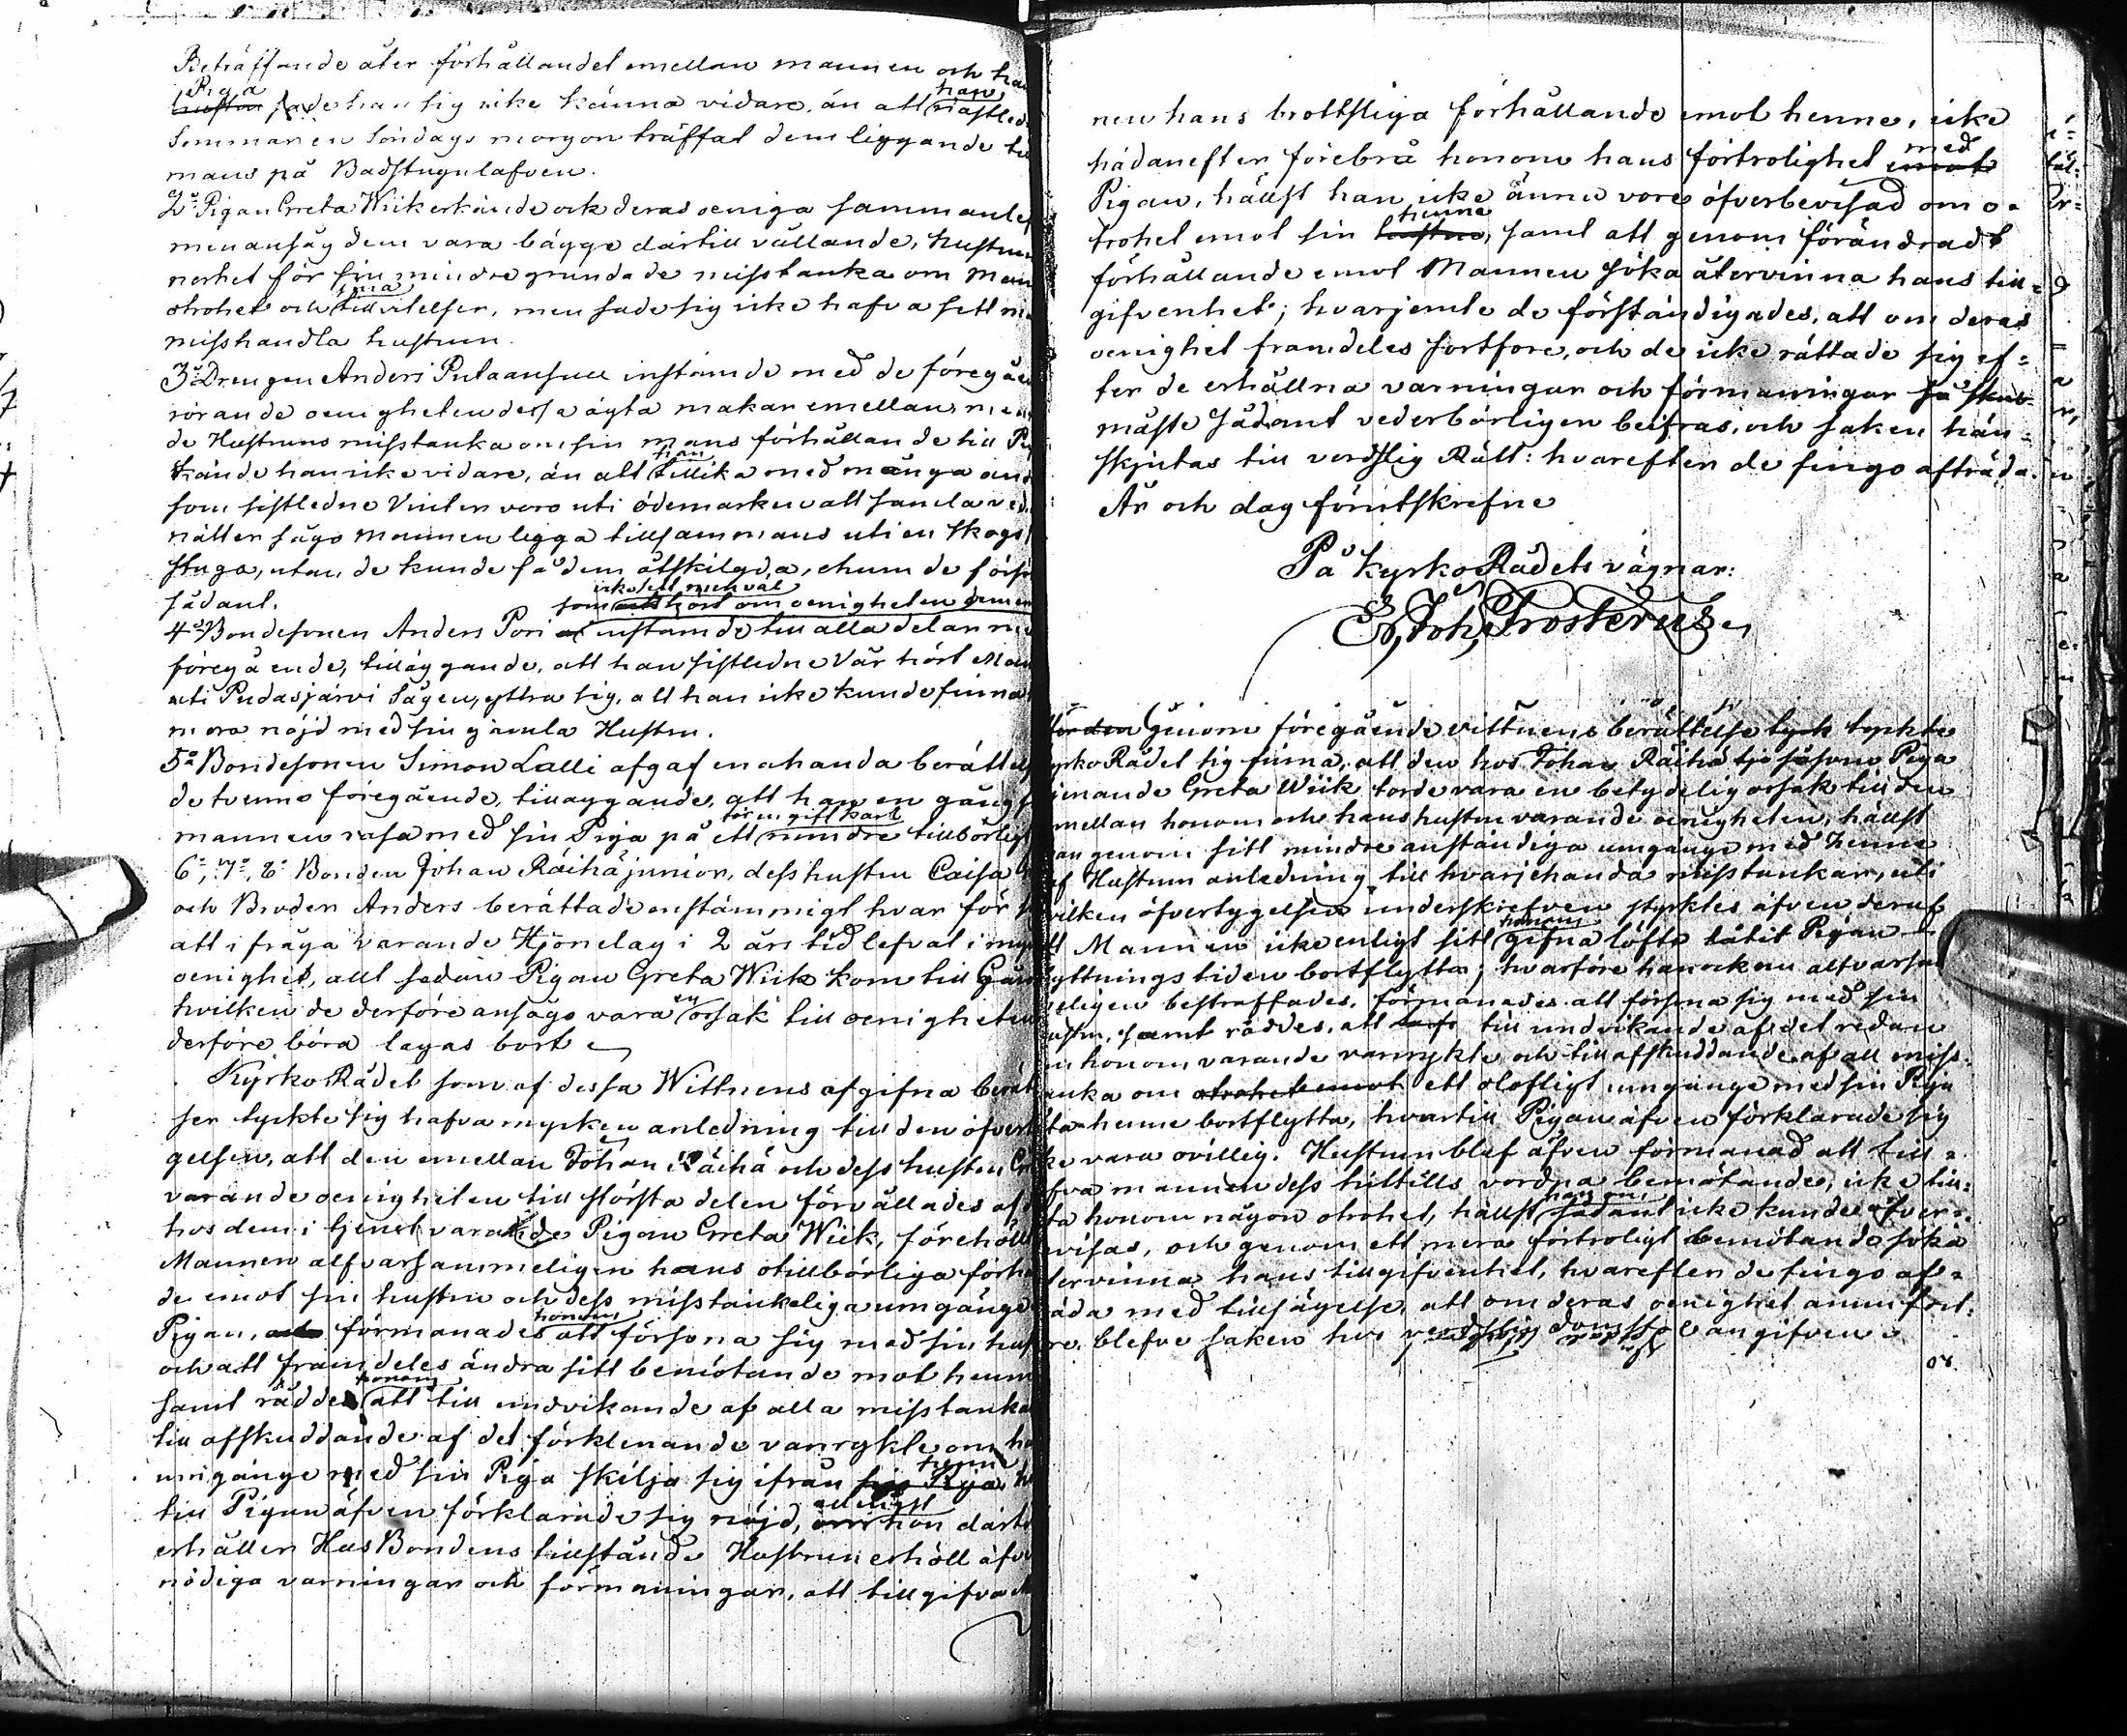 Beträffande åter förhållandet emellan mannen och ha
Piga
hustru sade han sig icke känna vidare, än att han nästled
Sommar en Söndags morgon träffat dem liggande til
mans på Badstugulafven.
2:o Pigan Greta Wiik erkände ock deras oeniga sammanlef
men ansåg dem vara bägge därtill vållande, hustrun
nerhet för sin mindre grundade misstanka om Man
otrohet och sina tillvitelser, men sade sig icke hafva sett m
misshandla hustrun.
3:o Drengen Anders Putaansuu instämde med de föregåe
rörande oenigheten dessa ägta makar emellan, men
de Hustruns misstanka om sin mans förhållande till Pi
kände han icke vidare, än att han tillika med många and
som sistledne Vinter voro uti ödemarken att samla ved
nätter sågo mannen ligga tillsammans uti en Skogs
stuga, utan de kunde få dem åtskilgda, ehuru de förs
sådant.
som icke sett men väl hört om oenigheten
4:o Bondesonen Anders Pori instämde till alla delar m
föregående, tilläggande, att han sistledne Vår hört Man
uti Pudasjärvi Sågen, yttra sig, att han icke kunde finna
mera nöjd med sin gamla Hustru.
5:o Bondesonen Simon Lalli afgaf enahanda berättels
de tvenne föregående, tilläggande, att han en gång s
mannen rasa med sin Piga på ett för en gift karl mindre tillbörligt
6:o, 7:o, 8:o Bonden Johan Räihä junior, dess hustru Caisa
och Broder Anders berättade enstämmigt hvar för s
att i fråga varande Hjonelag i 2 års tid lefvat i my
oenighet, allt sedan Pigan Greta Wiik kom till Går
hvilken de derföre ansågo vara en orsak till oenigheten
derföre böra lagas bort
Kyrko Rådet som af dessa Wittnens afgifna berät
ser tyckte sig hafva mycken anledning till den öfvert
gelsen, att den emellan Johan Räihä och dess hustru
varande oenigheten till största delen förvållades af
hos dem i tjenst varande Pigan Greta Wiik, förehöll
Mannen alfvarsammeligen hans otillbörliga förhå
de emot sin hustru och dess misstänkeliga umgänge
Pigan, förmanades honom att försona sig med sin hus
och att framdeles ändra sitt bemötande mot henne
samt rådde honom att till undvikande af alla misstanka
till afskuddande af det förklenande vanrykte om ha
umgänge med sin Piga skilja sig ifrån henne sin Piga, h
till Pigan äfven förklarade sig nöjd, allenast om hon därti
erhåller HusBondens tillstånd. Hustrun erhöll äfve
nödiga varningar och förmaningar, att tillgifva M
nen hans brottsliga förhållande emot henne, icke
hädanefter förebrå honom hans förtrolighet med emot
Pigan, hällst han icke ännu vore öfverbevisad om o-
trohet emot sin henne hustru, samt att genom förändradt
förhållande emot Mannen söka återvinna hans till-
gifvenhet; hvarjemte de förständigades, att om deras
oenighet framdeles fortfore, och de icke rättade sig ef-
ter de erhållna varningar och förmaningar så skul
måste sådant vederbörligen beifras, och saken hän-
skjutas till verdslig Rätt: hvarefter de fingo afträda.
År och dag förutskrefne
På Kyrko Rådets vägnar:
Er. Joh. Frosterus
Genom föregående vittnens berättelse tyck tyckte
yrko Rådet sig finna, att den hos Johan Räihä tjo såsom Piga
jenande Greta Wiik torde vara en betydelig orsak till den
mellan honom och hans hustru varande oenigheten, hällst
an genom sitt mindre anständiga umgänge med henne
af Hustrun anledning till hvarjehanda misstankar, uti
vilken öfvertygelsen underskrefven styrktes äfven deraf
tt Mannen icke enligt sitt honom gifna löfte låtit Pigan
lyttningstiden bortflytta; hvarföre han ock nu alfvarsa
eligen bestraffades, förmanades att försona sig med sin
ustru, samt råddes, att till undvikande af det redan
m honom varande vanrykte och till afskuddande af all miss-
anka om otrohet emot ett olofligt umgänge med sin Piga
ta henne bortflytta, hvartill Pigan äfven förklarade sig
ke vara ovillig. Hustrun blef äfven förmanad att till-
fva mannen dess hittills vordna bemötande, icke till-
ta honom någon otrohet, hällst han om sådant icke kunde öfver-
visas, och genom ett mera förtroligt bemötande söka
tervinna hans tillgifvenhet, hvarefter de fingo af-
äda med tillsägelse, att om deras oenighet ännu fort-
re, blefve saken hos verdslig domstol angifven.